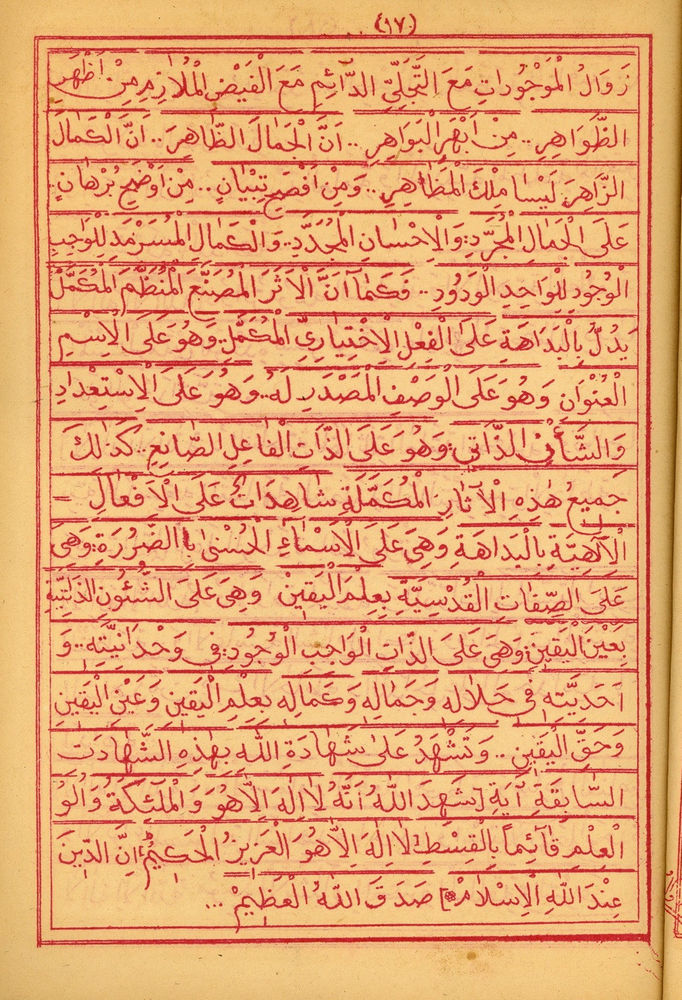 (١٧)
زَوَالُ الْمَوْجُودَاتِ مَعَ التَّجَلِّي الدَّآئِمِ مَعَ الْفَيْضِ الْمُلَازِمِ مِنْ اَظْهَرِ
الظَّوَاهِرِ.. مِنْ اَبْهَرِ الْبَوَاهِرِ.. اَنَّ الْجَمَالَ الظَّاهِرَ.. اَنَّ الْكَمَالَ
الزَّاهِرَ لَيْسَا مِلْكَ الْمَظَاهِرِ.. وَمِنْ اَفْصَحِ تِبْيَانٍ.. مِنْ اَوْضَحِ بُرْهَانٍ..
عَلَى الْجَمَالِ الْمُجَرَّدِ: وَالْاِحْسَانِ الْمُجَدَّدِ.. وَالْكَمَالِ الْمُسَرْمَدِ لِلْوَاجِبِ
الْوُجُودِ لِلْوَاحِدِ الْوَدُودِ.. فَكَمَآ اَنَّ الْاَثَرَ الْمُصَنَّعَ الْمُنَظَّمَ الْمُكَمَّلَ
يَدُلُّ بِالْبَدَاهَةِ عَلَى الْفِعْلِ الْاِخْتِيَارِيِّ الْمُكَمَّلِ. وَهُوَ عَلَى الْاِسْمِ
الْعُنْوَانِ وَهُوَ عَلَى الْوَصْفِ الْمَصْدَرِ لَهُ. وَهُوَ عَلَى الْاِسْتِعْدَادِ
وَالشَّأْنِ الذَّاتِي: وَهُوَ عَلَى الذَّاتِ الْفَاعِلِ الصَّانِعِ.. كَذٰلِكَ
جَمِيعُ هٰذِهِ الْاٰثَارِ الْمُكَمَّلَةِ شَاهِدَاتٌ عَلَى الْاَفْعَالِ =
الْاِلٰهِيَّةِ بِالْبَدَاهَةِ وَهِيَ عَلَى الْاَسْمَاءِ الْحُسْنٰى بِالضَّرُورَةِ: وَهِيَ
عَلَى الصِّفَاتِ الْقُدْسِيَّةِ بِعِلْمِ الْيَقِينِ وَهِيَ عَلَى الشُّئُونِ الذَّاتِيَّةِ
بِعَيْنِ الْيَقِينِ: وَهِيَ عَلَى الذَّاتِ الْوَاجِبِ الْوُجُودِ فِي وَحْدَانِيَّتِهِ.. وَ
اَحَدِيَّتِهِ فِي جَلَالِهِ وَجَمَالِهِ وَكَمَالِهِ بِعِلْمِ الْيَقِينِ وَعَيْنِ الْيَقِينِ
وَحَقِّ الْيَقِينِ.. وَتَشْهَدُ عَلَى شَهَادَةِ اللّٰهِ بِهٰذِهِ الشَّهَادَتِ
السَّابِقَةِ اٰيَةِ [شَهِدَ اللّٰهُ اَنَّهُ لَا اِلٰهَ اِلَّا هُوَ وَالْمَلٰٓئِكَةُ وَاُلُو
الْعِلْمِ قَآئِماً بِالْقِسْطِ لَا اِلٰهَ اِلَّا هُوَ الْعَزِيزُ الْحَكِيمُ: اِنَّ الدِّينَ
عِنْدَ اللّٰهِ الْاِسْلَامُ] صَدَقَ اللّٰهُ الْعَظِيمُ...